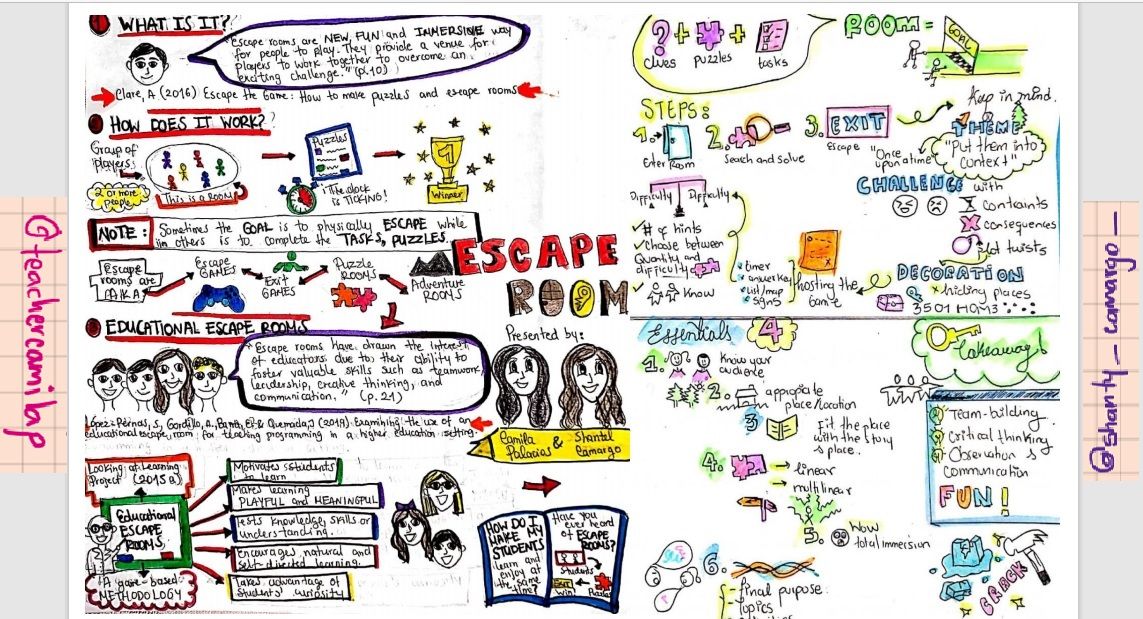 @teachercamilap
WHAT IS IT?
"Escape rooms are NEW, FUN and IMMERSIVE way
for people to play. They provide a venue for
players to work together to overcome an
exciting challenge." (p.10)
Clare, A (2016) Escape the Game: How to make puzzles and escape rooms
HOW DOES IT WORK?
Group of
players:
2 or more
people
This is a ROOM
Puzzles
The clock
is TICKING!
1
Winner
NOTE:
Sometimes the GOAL is to physically ESCAPE while
in others is to complete the TASKS, PUZZLES.
Escape
rooms are
A.K.A
Escape
GAMES
Exit
GAMES
Puzzle
ROOMS
Adventure
ROOMS
ESCAPE
ROOM
EDUCATIONAL ESCAPE ROOMS
"Escape rooms have drawn the interest
of educators due to their ability to
foster valuable skills such as teamwork,
leadership, creative thinking, and
communication." (p.21)
Examining the use of an
educational escape room for teaching programming in a higher education setting.
Presented by:
Camila
Palacios
&
Shantal
Camargo
Looking at Learning
Project (2015a)
Educational
ESCAPE
ROOMS
"A game-based
METHODOLOGY
Motivates students
to learn
Makes learning
PLAYFUL and MEANINGFUL
Tests knowledge, skills or
understanding.
Encourages natural and
self-directed learning.
Takes advantage of
students' curiosity
HOW DO I
MAKE MY
STUDENTS
learn and
enjoy at
the same
time?
Have you
ever heard
of ESCAPE
ROOMS?
Students
Win!
Puzzles
? + +
clues puzzles tasks
ROOM =
GOAL
STEPS:
1.
Enter Room
2.
Seach and solve
3. EXIT
escape
Keep in mind.
THEME
"Put them into
context"
"Once
upon a time"
CHALLENGE with
contraints
consequences
plot twists
DECORATION
hiding places
Difficulty Difficulty
# of hints
choose between
Quantity and
difficulty
Know
timer
answer key
list/map
signs
hosting the
Game
Essentials 4
1. Know your
audience
2. appropiate
place/location
3 Fit the place
with the story
s place.
4. linear
multilinear
5. Wow
total immersion
6.
Final purpose:
Topics
Takeaway!
Team-building
Critical thinking
Observation &
communication
FUN!
CRACK
@shanty_camargo_